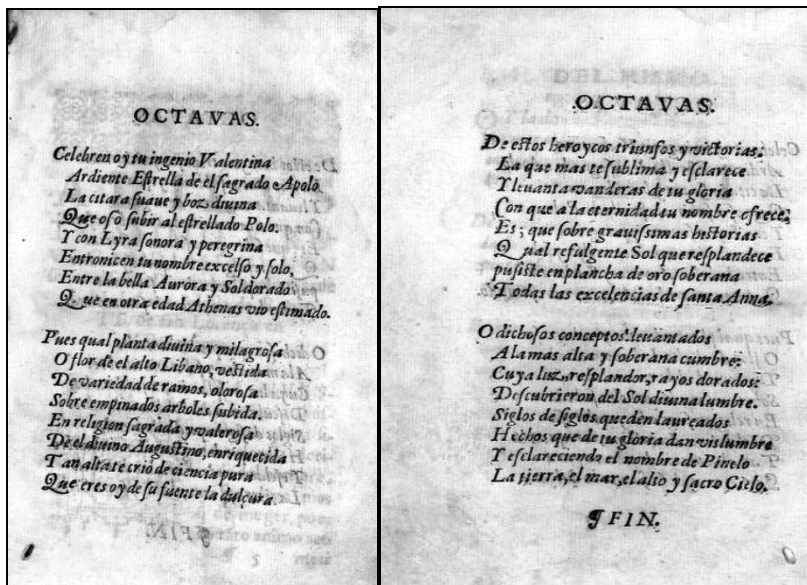 OCTAVAS.
Celebren oy tu ingenio Valentina
Ardiente Estrella de el sagrado Apolo
La citara suaue y boz diuina
Que osò subir al estrellado Polo.
Y con Lyra sonora y peregrina
Entronicen tu nombre excelso y solo,
Entre la bella Aurora y Sol dorado
Que en otra edad Athenas vio estimado.
Pues qual planta diuina y milagrosa
O flor de el alto Libano, vestida
De variedad de ramos, olorosa
Sobre empinados arboles subida.
En religion sagrada y valerosa
De el diuino Augustino, enriquecida
Tan alta te crio de ciencia pura
Que eres oy de su fuente la dulçura.
¶FIN.
¶ 5
OCTAVAS.
De estos heroycos triunfos y victorias:
La que mas te sublima y esclarece
Y leuanta vanderas de tu gloria
Con que a la eternidad tu nombre ofrece;
Es; que sobre grauissimas historias
Qual refulgente Sol que resplandece
pusiste en plancha de oro soberana
Todas las excelencias de santa Anna.
O dichosos conceptos! leuantados
A la mas alta y soberana cumbre:
Cuya luz, resplandor, rayos dorados:
Descubrieron del Sol diuina lumbre.
Siglos de siglos queden laureados
Hechos que de tu gloria dan vislumbre
Y esclareciendo el nombre de Pinelo
La tierra, el mar, el alto y sacro Cielo.
¶FIN.